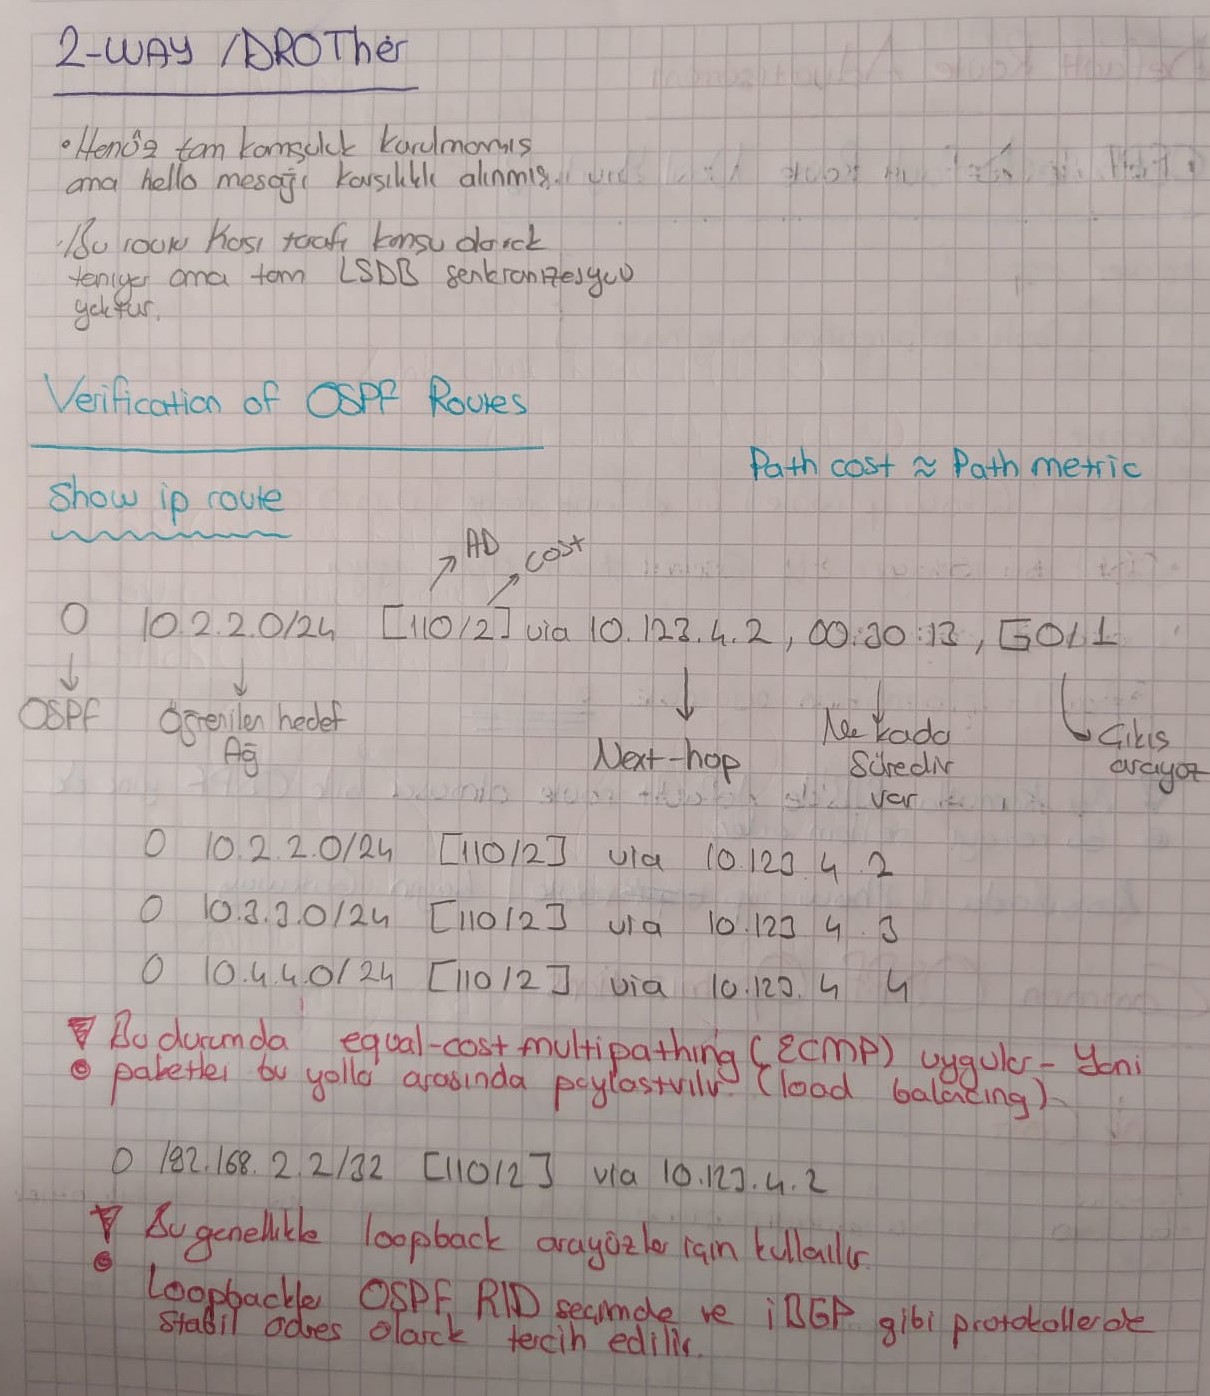 2-WAY / DROTher
• Henüz tam komşuluk kurulmamış
ama hello mesajı karşılıklı alınmış.
• Bu router karşı tarafı komşu olarak
tanıyor ama tam LSDB senkronizasyonu
yoktur.
Verification of OSPF Routes
Path cost ≈ Path metric
Show ip route
AD cost
O 10.2.2.0/24 [110/2] via 10.123.4.2, 00:30:13, G0/1
OSPF Öğrenilen hedef Ağ Next-hop Ne kadar Süredir var Çıkış arayüz
O 10.2.2.0/24 [110/2] via 10.123.4.2
O 10.3.3.0/24 [110/2] via 10.123.4.3
O 10.4.4.0/24 [110/2] via 10.123.4.4
Bu durumda equal-cost multipathing (ECMP) uygular - Yani
paketler bu yollar arasında paylaştırılır. (load balancing)
O 192.168.2.2/32 [110/2] via 10.123.4.2
Bu genellikle loopback arayüzler için kullanılır.
Loopbackler OSPF RID seçiminde ve iBGP gibi protokollerde
stabil adres olarak tercih edilir.